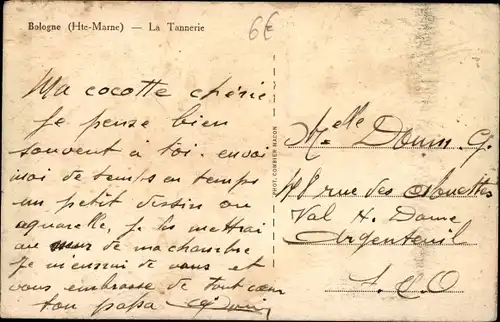 Bologne (Hte-Marne) — La Tannerie
6€
Ma cocotte chérie
je pense bien
souvent à toi. envoi
moi de temps en temps
un petit dessin ou
aquarelle, je les mettrai
au mur de ma chambre
je m'ennui de vous et
vous embrasse de tout cœur
ton papa
PHOT. COMBIER MACON
Melle Doum G.
rue des alouettes
Val N. Dame
Argenteuil
S. & O